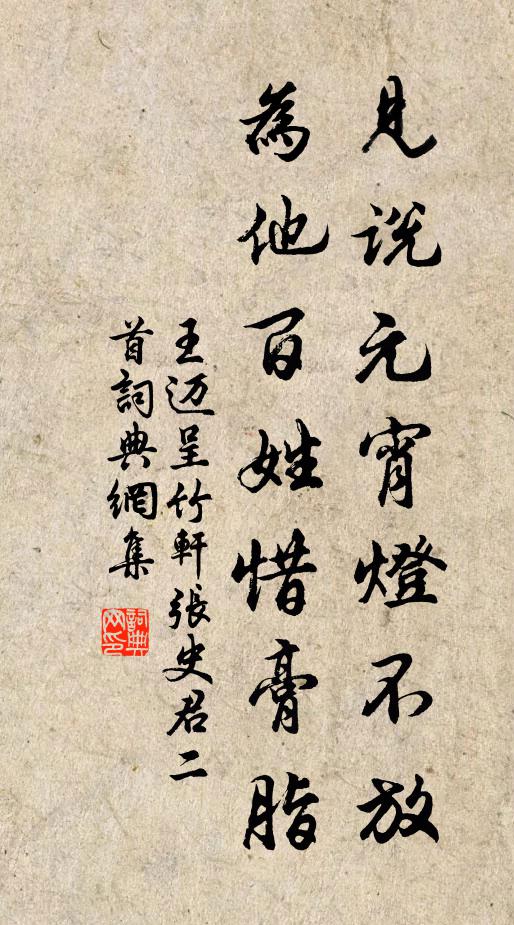 見説元宵燈不放
為他百姓惜膏脂
王迈呈竹軒張史君二
首詞典網集
詞典
网印